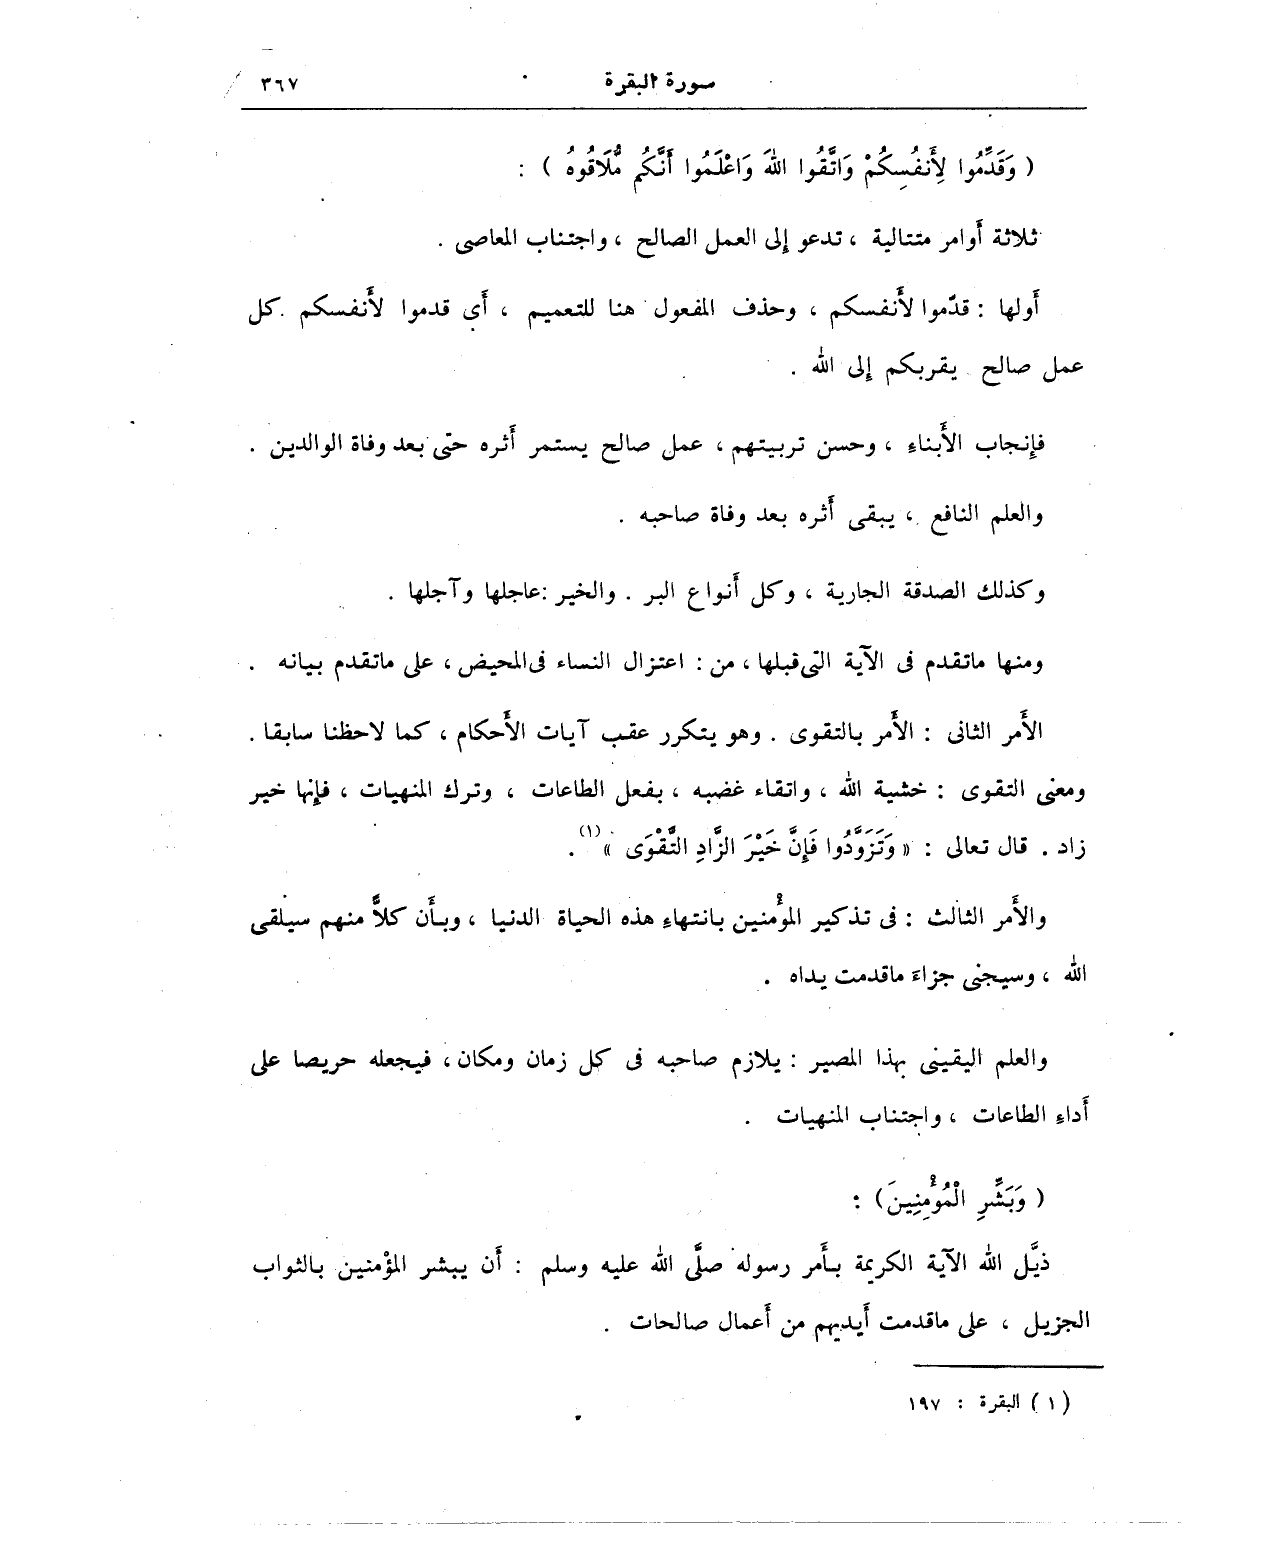 سورة البقرة ٣٦٧
( وَقَدِّمُوا لِأَنفُسِكُمْ وَاتَّقُوا اللهَ وَاعْلَمُوا أَنَّكُم مُّلَاقُوهُ ) :
ثلاثة أوامر متتالية ، تدعو إلى العمل الصالح ، واجتناب المعاصى .
أولها : قدّموا لأنفسكم ، وحذف المفعول هنا للتعميم ، أى قدموا لأنفسكم كل
عمل صالح يقربكم إلى الله .
فإنجاب الأبناءِ ، وحسن تربيتهم ، عمل صالح يستمر أثره حتى بعد وفاة الوالدين .
والعلم النافع ، يبقى أثره بعد وفاة صاحبه .
وكذلك الصدقة الجارية ، وكل أنواع البر . والخير : عاجلها وآجلها .
ومنها ماتقدم فى الآية التى قبلها ، من : اعتزال النساء فى المحيض ، على ماتقدم بيانه .
الأمر الثانى : الأمر بالتقوى . وهو يتكرر عقب آيات الأحكام ، كما لاحظنا سابقا .
ومعنى التقوى : خشية الله ، واتقاء غضبه ، بفعل الطاعات ، وترك المنهيات ، فإنها خير
زاد . قال تعالى : « وَتَزَوَّدُوا فَإِنَّ خَيْرَ الزَّادِ التَّقْوَى » (١) .
والأمر الثالث : فى تذكير المؤْمنين بانتهاءِ هذه الحياة الدنيا ، وبأن كلاًّ منهم سيلقى
الله ، وسيجنى جزاءَ ماقدمت يداه .
والعلم اليقينى بهذا المصير : يلازم صاحبه فى كل زمان ومكان ، فيجعله حريصا على
أداءِ الطاعات ، واجتناب المنهيات .
( وَبَشِّرِ الْمُؤْمِنِينَ ) :
ذيَّل الله الآية الكريمة بأمر رسوله صلَّى الله عليه وسلم : أن يبشر المؤْمنين بالثواب
الجزيل ، على ماقدمت أيديهم من أعمال صالحات .
( ١ ) البقرة : ١٩٧